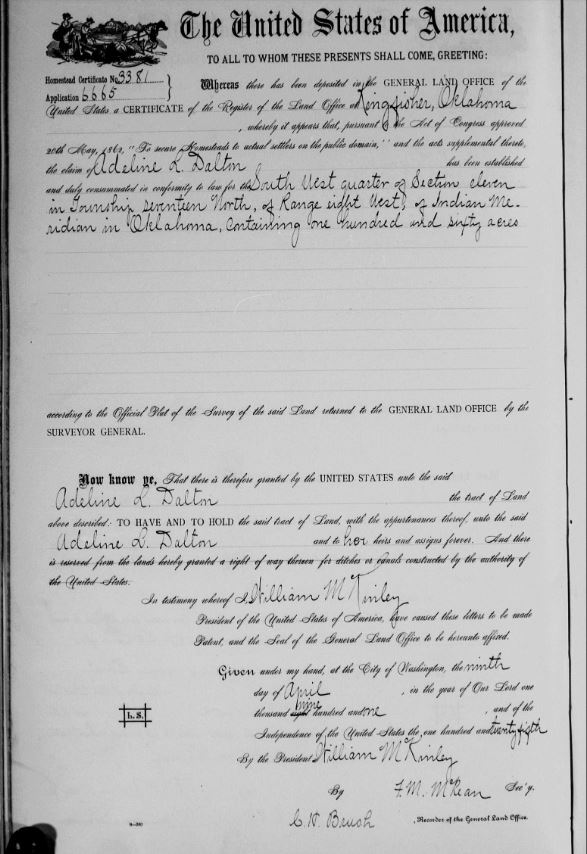 The United States of America,
TO ALL TO WHOM THESE PRESENTS SHALL COME, GREETING:
Homestead Certificate No. 3381
Application 6665
Whereas there has been deposited in the GENERAL LAND OFFICE of the
United States a CERTIFICATE of the Register of the Land Office at Kingfisher, Oklahoma
, whereby it appears that, pursuant to the Act of Congress approved
20th May, 1862, "To secure Homesteads to actual settlers on the public domain," and the acts supplemental thereto,
the claim of Adeline L. Dalton has been established
and duly consummated in conformity to law for the South West quarter of Section eleven
in Township seventeen North, of Range eight West, of Indian Me-
ridian in Oklahoma, containing one hundred and sixty acres
according to the Official Plat of the Survey of the said Land returned to the GENERAL LAND OFFICE by the
SURVEYOR GENERAL.
Now know ye, That there is therefore granted by the UNITED STATES unto the said
Adeline L. Dalton the tract of Land
above described: TO HAVE AND TO HOLD the said tract of Land, with the appurtenances thereof, unto the said
Adeline L. Dalton and to her heirs and assigns forever. And there
is reserved from the lands hereby granted a right of way thereon for ditches or canals constructed by the authority of
the United States.
In testimony whereof I, William McKinley
President of the United States of America, have caused these letters to be made
Patent, and the Seal of the General Land Office to be hereunto affixed.
Given under my hand, at the City of Washington, the ninth
day of April , in the year of Our Lord one
thousand eight nine hundred and one , and of the
Independence of the United States the one hundred and twenty fifth
L.S.
By the President: William McKinley
By F. M. McKean Sec'y.
C. H. Brush , Recorder of the General Land Office.